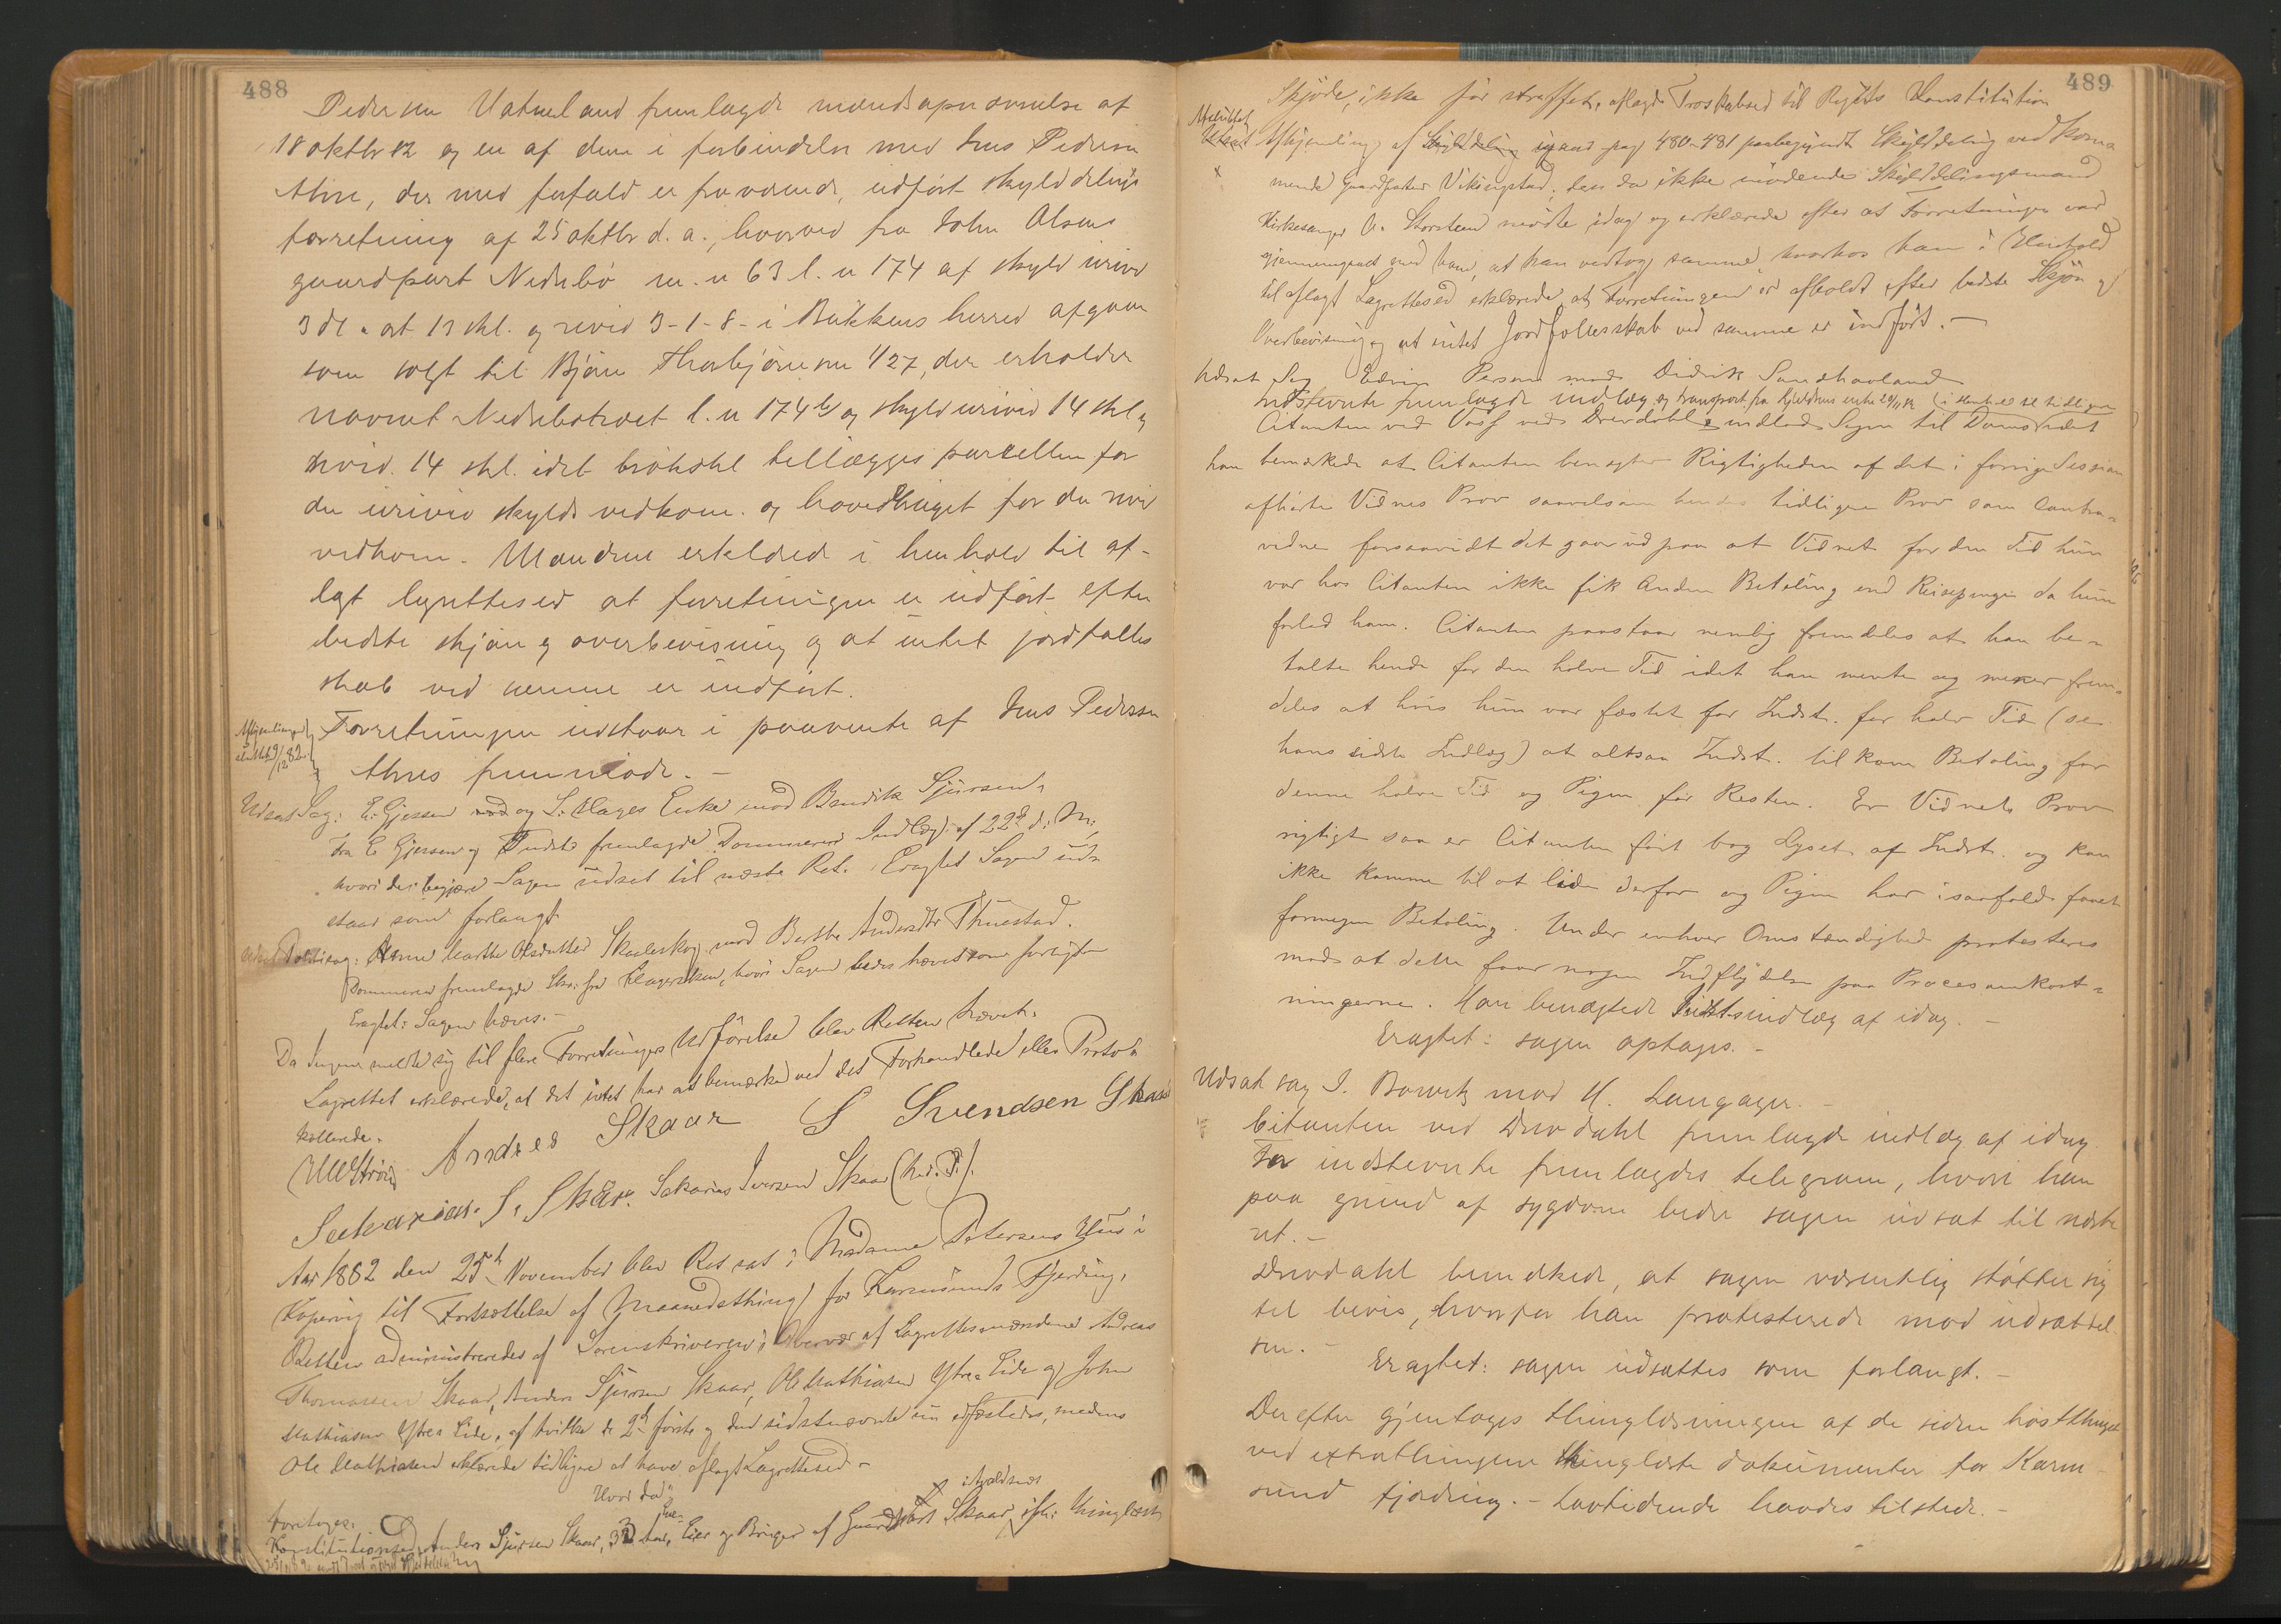 488
Pedersen Vatneland fremlagde mandsopnævnelse af
18 oktbr 82 og en af dem i forbindelse med Jens Pedersen
Ahre, der med forfald er fraværende, udført skylddelings
forretning af 25 oktbr d. a., hvorved fra John Olsens
gaardpart Nedrebø m. n 63 l. n 174 af skyld urevid
3 dl. ort 13 skl. og revid 3-1-8- i Bukkens herred afgaar
som solgt til Bjørn Thorbjørnsen 1/27, der erholder
navnet Nedrebøtræet l. n 174 b og skyld urevid 14 skl og
revid. 14 skl. idet brøkskl tillægges parcellen for
den urevid skylds vedkom. og hovedbruget for den revid
vedkom. Mændene erklærede i henhold til af-
lagt lagrettesed at forretningen er udført efter
bedste skjøn og overbevisning og at intet jordfælles
skab ved samme er indført.
Afhjemlingen
sluttet 9/12 82.
Forretningen udstaar i paavente af Jens Pedersen
Ahres fremmøde. -
Udsat Sag: E. Gjessen og L. Hages Enke mod Bendik Sjursen.
Fra E. Gjessen og Indst. fremlagde Dommeren Indlæg af 22de d. M.,
hvori de begjære Sagen udsat til næste Ret. Eragtet Sagen ud-
staar som forlangt.
Udsat Politisag: Anne Marthe Olsdatter Skaaleskog mod Berthe Andersdtr Thuestad.
Dommeren fremlagde Skr. fra Klagersken, hvori Sagen bedes hævet som forligt.
Eragtet: Sagen hæves. -
Da Ingen meldte sig til flere Forretningers Udførelse blev Retten hævet.
Lagrettet erklærede, at det intet har at bemærke ved det Forhandlede eller Proto-
kollerede.
Andres Skaar S Svendsen Skaar
Sakarias. I. Skaar. Sakarias Iversen Skaar (h. d. P.).
Aar 1882 den 25de November blev Ret sat i Madame Petersens Hus i
Kopervig til Fortsættelse af Maanedsthing for Karmsunds Fjerding.
Retten administreredes af Sorenskriveren i Overvær af Lagrettesmændene Andreas
Thomassen Skaar, Anders Sjursen Skaar, Ole Mathiasen Ytre-Eide og John
Mathiasen Ytre-Eide, af hvilke de 2de første og den sidstnævnte nu edfæstedes, medens
Ole Mathiasen erklærede tidligere at have aflagt Lagrettesed -
Hvor da
foretoges:
Konstitutionsed. Anders Sjursen Skaar, 32 Aar, Eier og Bruger af Gaardpart Skaar i Avaldsnes ifl. thinglæst
489
Skjøde, ikke før straffet, aflagde Troskabsed til Rigets Konstitution
Afsluttet
Udsat Afhjemling af pag 480-481 paabegyndt Skylddeling vedkom-
mende Gaardparten Vikingstad; den da ikke mødende Skylddelingsmand
Kirkesanger A. Storsteen mødte idag og erklærede efter at Forretningen var
gjennemgaaet med ham, at han vedtog samme, hvorhos han i Henhold
til aflagt Lagrettesed erklærede, at Forretningen er afholdt efter bedste Skjøn og
Overbevisning og at intet Jordfællesskab ved samme er indført. -
Udsat Sag Edvin Persen mod Didrik Sandhaaland
Indstevnte fremlagde indlæg og transport fra
Citanten ved Vasf ved Drevdahl indlod Sagen til Doms idet
han bemærkede at Citanten benegter Rigtigheden af det i forrige Session
afhørte Vidnes Prov saavelsom hendes tidligere Prov som Contra-
vidne forsaavidt det gaar ud paa at Vidnet for den Tid hun
var hos Citanten ikke fik Anden Betaling end Reisepenge da hun
forlod ham. Citanten paastaar nemlig fremdeles at han be-
talte hende for den halve Tid idet han mente og mener frem-
deles at hvis hun var fæstet for Indst. for halv Tid (se
hans sidste Indlæg) at altsaa Indst. tilkom Betaling for
denne halve Tid og Pigen for Resten. Er Vidnets Prov
rigtigt saa er Citanten ført bag Lyset af Indst. og kan
ikke komme til at lide derfor og Pigen har isaafald faaet
formegen Betaling. Under enhver Omstændighed protesteres
mod at dette faar nogen Indflydelse paa Procesomkost-
ningerne. Han benægtede Indstsindlæg af idag. -
Eragtet: sagen optages. -
Udsat sag I. Bowitz mod H. Langager. -
Citanten ved Drevdahl fremlagde indlæg af idag.
For indstevnte fremlagdes telegram, hvori han
paa grund af sygdom beder sagen udsat til næste
ret. -
Drevdahl bemærkede, at sagen væsentlig støtter sig
til bevis, hvorfor han protesterede mod udsættel-
sen. -
Eragtet: sagen udsættes som forlangt. -
Derefter gjentoges thinglæsningen af de siden høstthinget
ved extrathingene thinglæste dokumenter for Karm-
sund fjerding. - Lovtidende havdes tilstede. -